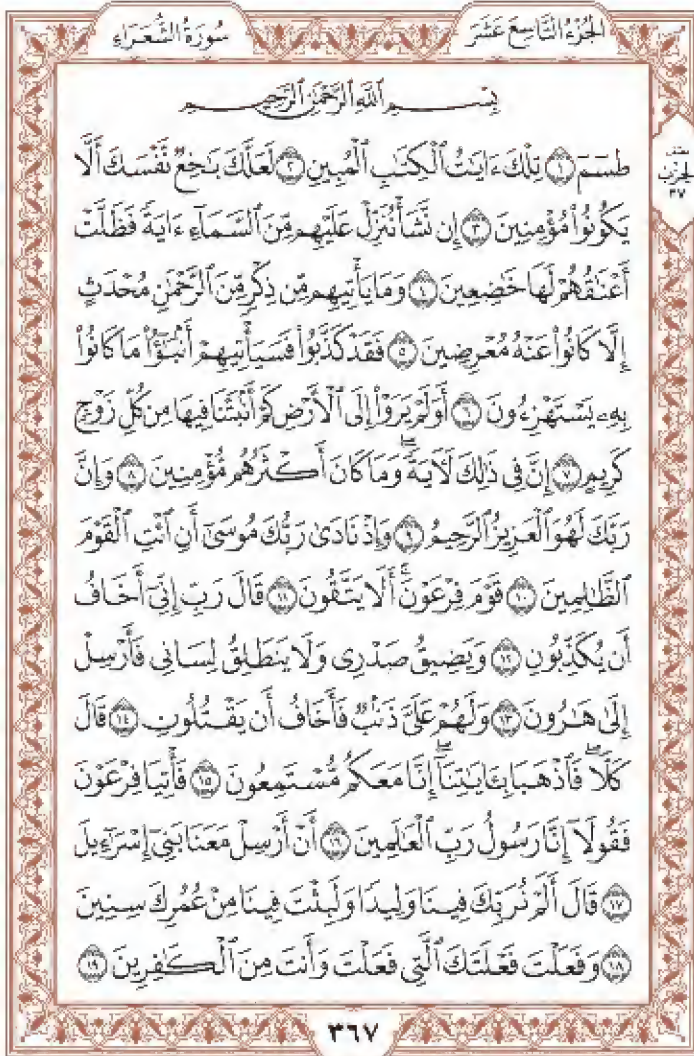 الجُزْءُ التَّاسِعَ عَشَرَ
سُورَةُ الشُّعَرَاءِ
بِسْمِ ٱللَّهِ ٱلرَّحْمَٰنِ ٱلرَّحِيمِ
طسٓمٓ ١ تِلْكَ ءَايَٰتُ ٱلْكِتَٰبِ ٱلْمُبِينِ ٢ لَعَلَّكَ بَٰخِعٌ نَّفْسَكَ أَلَّا
يَكُونُوا۟ مُؤْمِنِينَ ٣ إِن نَّشَأْ نُنَزِّلْ عَلَيْهِم مِّنَ ٱلسَّمَآءِ ءَايَةً فَظَلَّتْ
أَعْنَٰقُهُمْ لَهَا خَٰضِعِينَ ٤ وَمَا يَأْتِيهِم مِّن ذِكْرٍ مِّنَ ٱلرَّحْمَٰنِ مُحْدَثٍ
إِلَّا كَانُوا۟ عَنْهُ مُعْرِضِينَ ٥ فَقَدْ كَذَّبُوا۟ فَسَيَأْتِيهِمْ أَنۢبَٰٓؤُا۟ مَا كَانُوا۟
بِهِۦ يَسْتَهْزِءُونَ ٦ أَوَلَمْ يَرَوْا۟ إِلَى ٱلْأَرْضِ كَمْ أَنۢبَتْنَا فِيهَا مِن كُلِّ زَوْجٍ
كَرِيمٍ ٧ إِنَّ فِى ذَٰلِكَ لَءَايَةً ۖ وَمَا كَانَ أَكْثَرُهُم مُّؤْمِنِينَ ٨ وَإِنَّ
رَبَّكَ لَهُوَ ٱلْعَزِيزُ ٱلرَّحِيمُ ٩ وَإِذْ نَادَىٰ رَبُّكَ مُوسَىٰٓ أَنِ ٱئْتِ ٱلْقَوْمَ
ٱلظَّٰلِمِينَ ١٠ قَوْمَ فِرْعَوْنَ ۚ أَلَا يَتَّقُونَ ١١ قَالَ رَبِّ إِنِّىٓ أَخَافُ
أَن يُكَذِّبُونِ ١٢ وَيَضِيقُ صَدْرِى وَلَا يَنطَلِقُ لِسَانِى فَأَرْسِلْ
إِلَىٰ هَٰرُونَ ١٣ وَلَهُمْ عَلَىَّ ذَنۢبٌ فَأَخَافُ أَن يَقْتُلُونِ ١٤ قَالَ
كَلَّا ۖ فَٱذْهَبَا بِـَٔايَٰتِنَآ ۖ إِنَّا مَعَكُم مُّسْتَمِعُونَ ١٥ فَأْتِيَا فِرْعَوْنَ
فَقُولَآ إِنَّا رَسُولُ رَبِّ ٱلْعَٰلَمِينَ ١٦ أَنْ أَرْسِلْ مَعَنَا بَنِىٓ إِسْرَٰٓءِيلَ
١٧ قَالَ أَلَمْ نُرَبِّكَ فِينَا وَلِيدًا وَلَبِثْتَ فِينَا مِنْ عُمُرِكَ سِنِينَ
١٨ وَفَعَلْتَ فَعْلَتَكَ ٱلَّتِى فَعَلْتَ وَأَنتَ مِنَ ٱلْكَٰفِرِينَ ١٩
الحِزْب
٣٧
٣٦٧